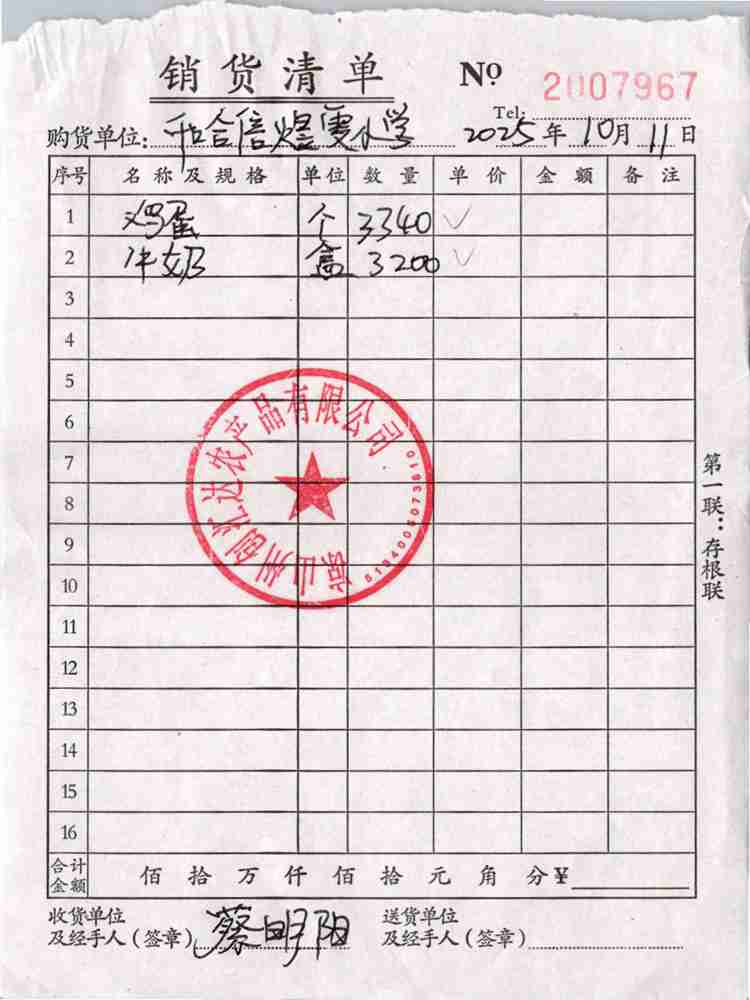 销货清单 No 2007967
Tel:
购货单位: 和合信煜雯小学 2025年10月11日
序号 名称及规格 单位 数量 单价 金额 备注
1 鸡蛋 个 3340 ✓
2 牛奶 盒 3200 ✓
3
4
5
6
7
8
9
10
11
12
13
14
15
16
凉山州创扎达农产品有限公司
第一联：存根联
合计金额 佰拾万仟佰拾元角分¥
收货单位及经手人（签章） 蔡明阳
送货单位及经手人（签章）